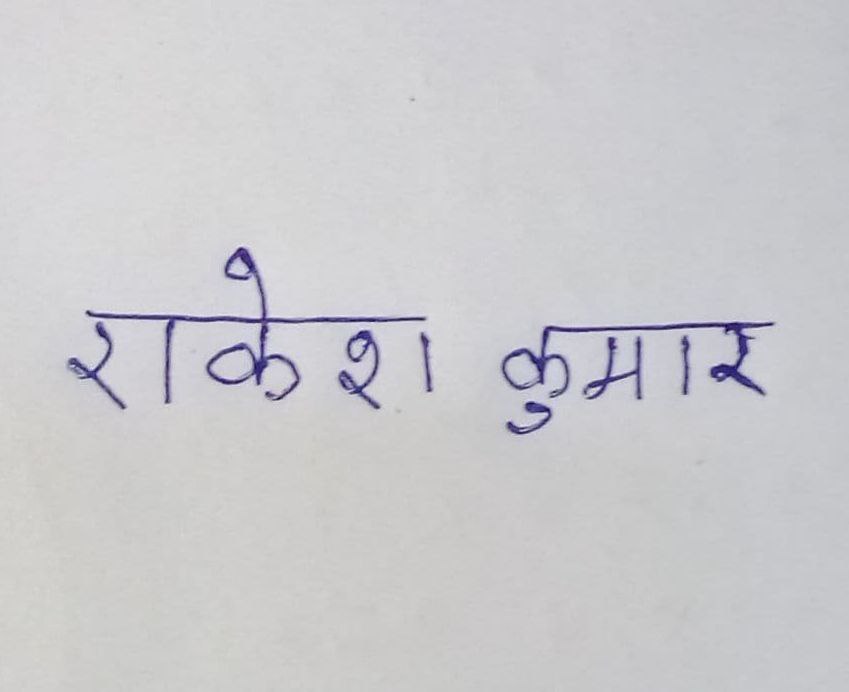 राकेश कुमार